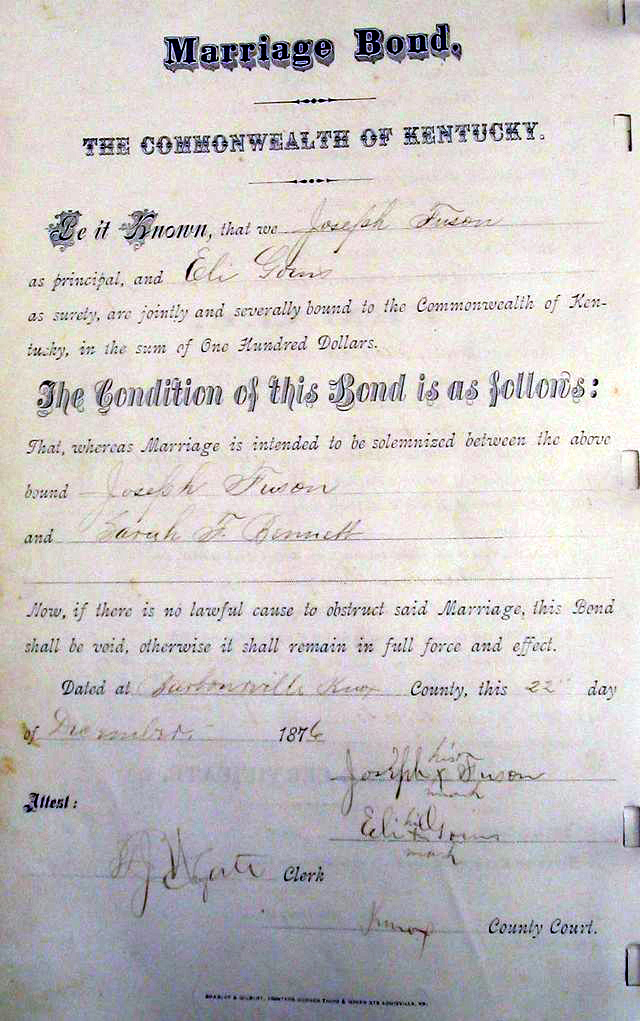 Marriage Bond.
THE COMMONWEALTH OF KENTUCKY.
Be it Known, that we Joseph Fuson
as principal, and Eli Goins
as surety, are jointly and severally bound to the Commonwealth of Ken-
tucky, in the sum of One Hundred Dollars.
The Condition of this Bond is as follows:
That, whereas Marriage is intended to be solemnized between the above
bound Joseph Fuson
and Sarah F. Bennett
Now, if there is no lawful cause to obstruct said Marriage, this Bond
shall be void, otherwise it shall remain in full force and effect.
Dated at Barbourville Knox County, this 22" day
of December 1876
his
Joseph x Fuson
mark
Attest:
his
Eli x Goins
mark
Clerk
Knox County Court.
BRADLEY & GILBERT, PRINTERS CORNER THIRD & GREEN STS LOUISVILLE, KY.